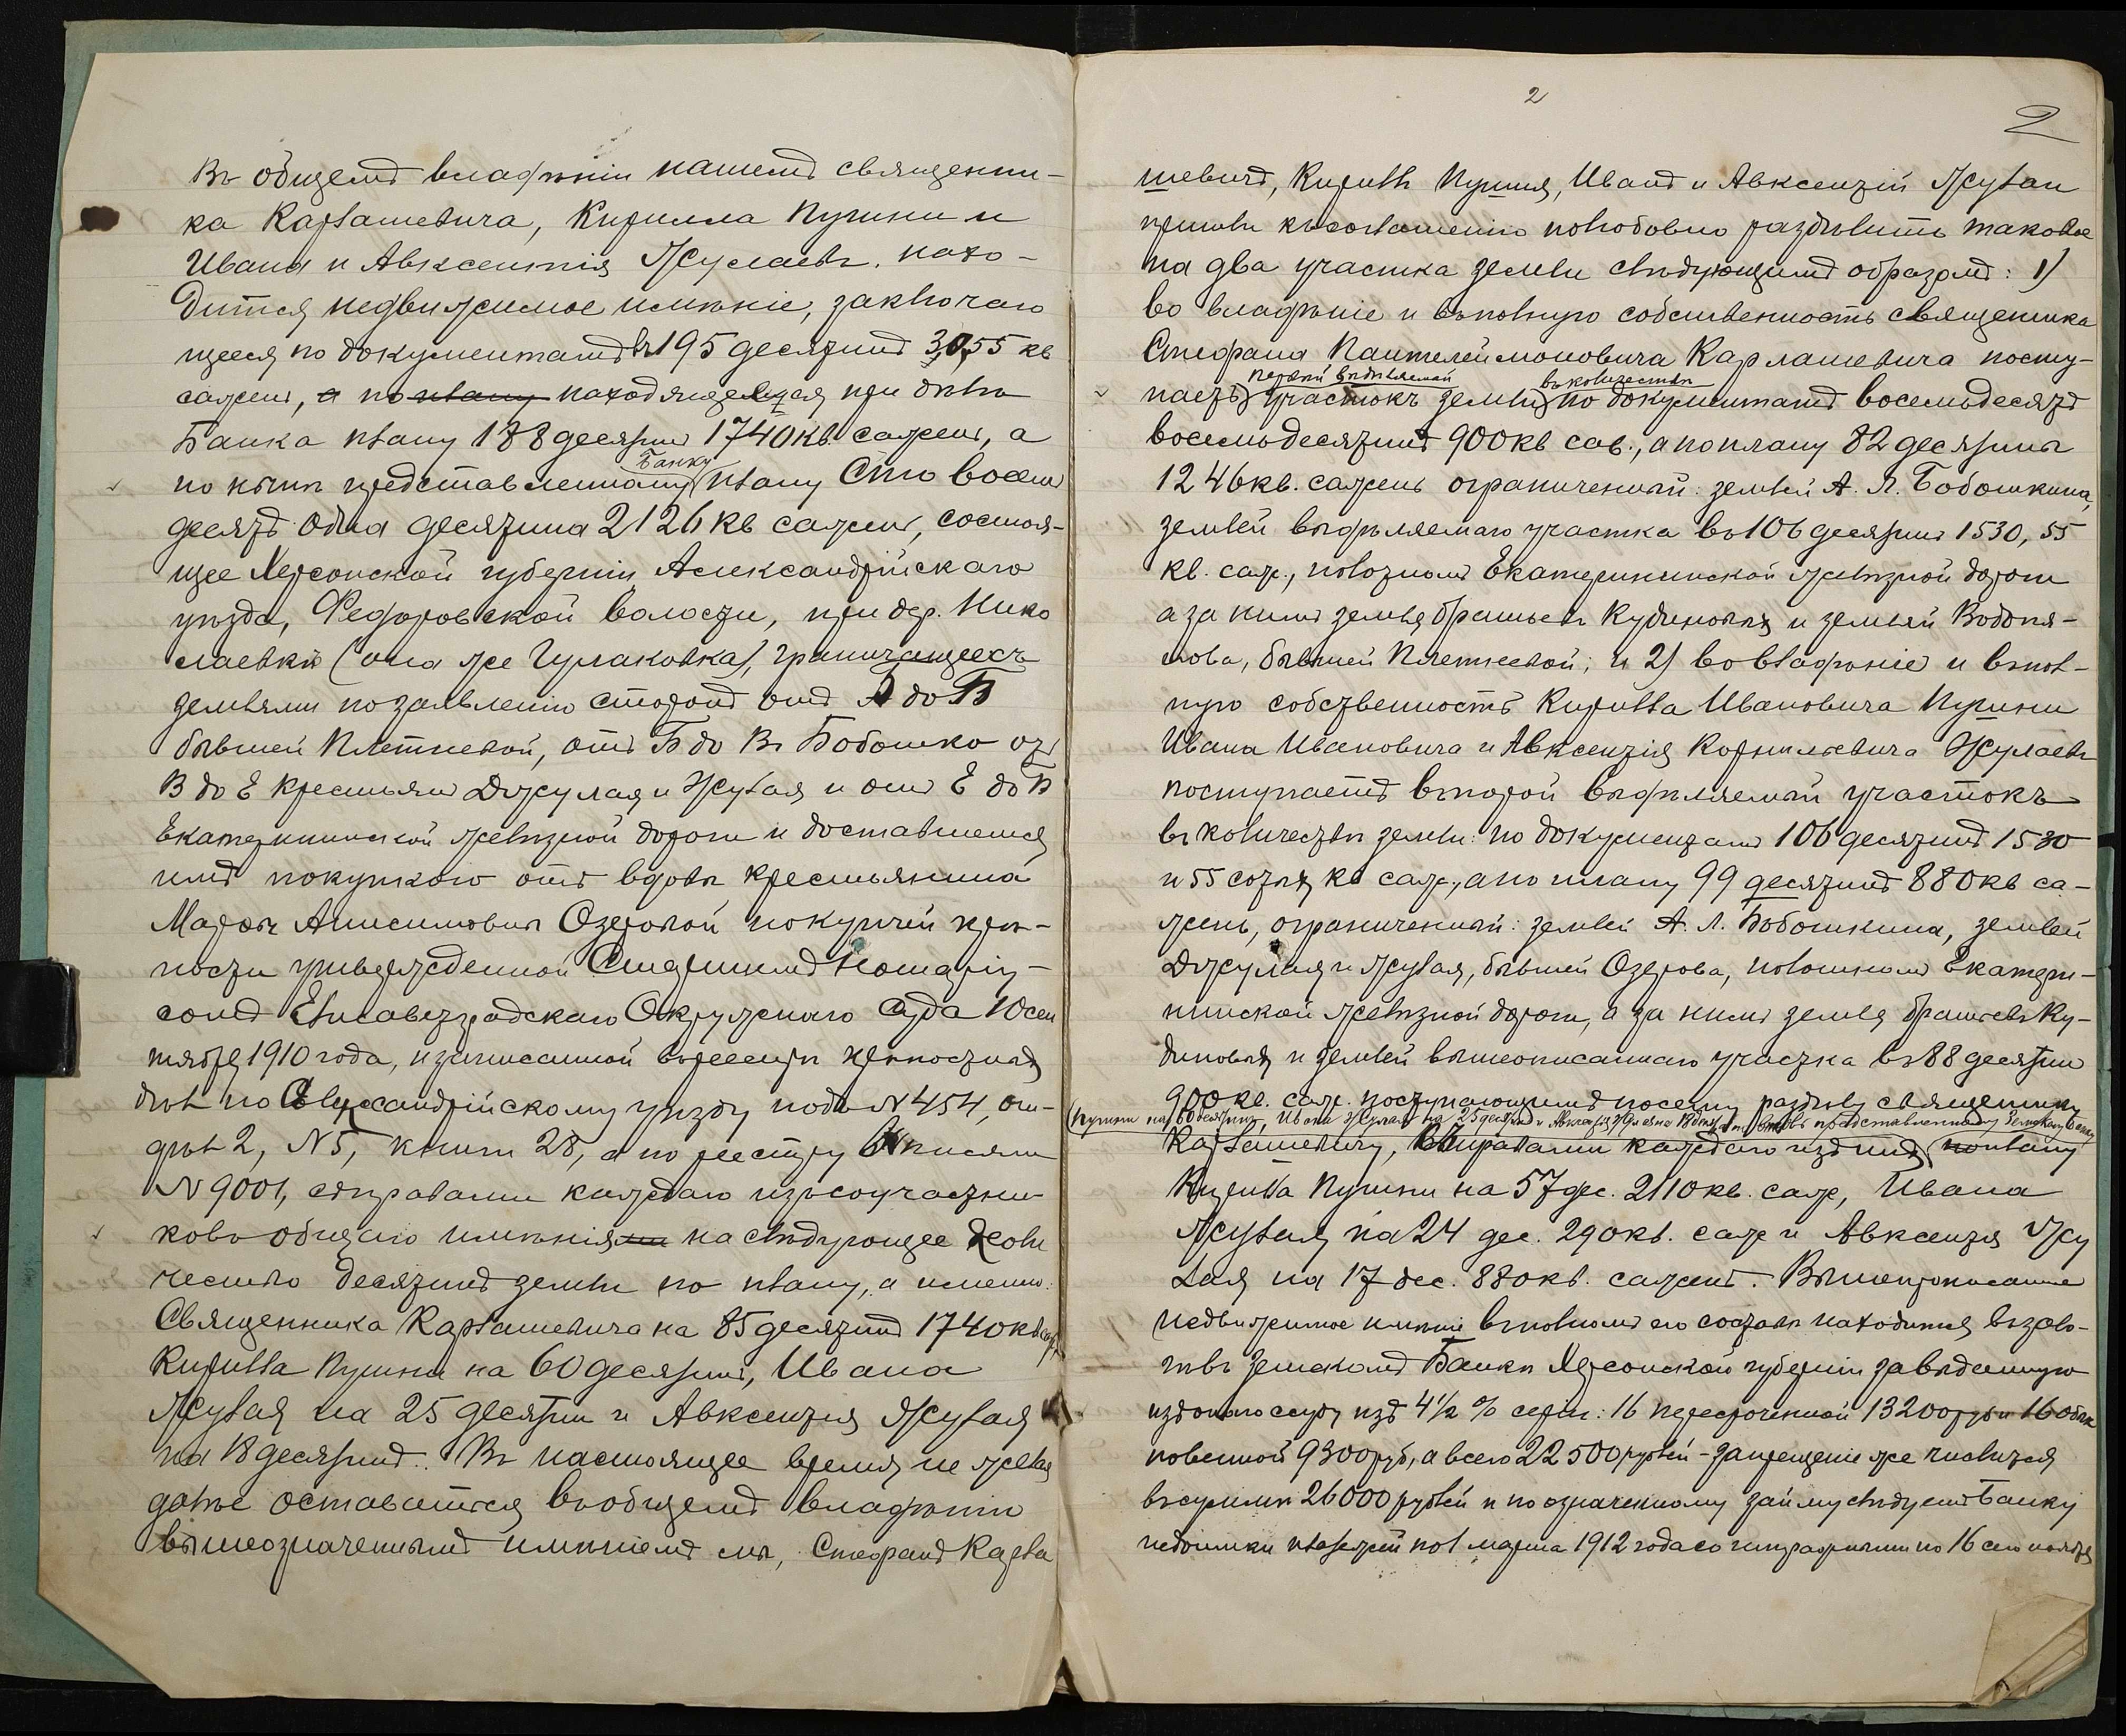 Въ общемъ владѣніи нашемъ священни-
ка Карлашевича, Кирилла Пушни и
Ивана и Авксентія Жулаевъ, нахо-
дится недвижимое имѣніе, заключаю
щееся по документамъ въ 195 десятинъ 30,55 кв
сажень, а по плану находящемуся при дѣлѣ
Банка плану 188 десятин 1740 кв. сажень, а
по нынѣ представленному Банку плану Сто восем
десятъ одна десятина 2126 кв сажень, состоя-
щее Херсонской губерніи, Александрійскаго
уѣзда, Федоровской волости, при дер. Нико
лаевкѣ (она же Гулаковка), граничащеесъ
землями по заявленію сторонъ отъ А до Б
бывшей Плетневой, отъ Б до В Бобошко отъ
В до Е крестьянъ Джулая и Жулая и отъ Е до Б
Екатерининской желѣзной дороги и доставшемся
имъ покупкою отъ вдовы крестьянина
Марѳы Анисимовны Озеровой по купчей крѣ-
пости утвержденной Старшимъ Нотаріу-
сомъ Елисаветградскаго Окружнаго Суда 10 сен
тября 1910 года, и записанной въ реестръ крѣпостныхъ
дѣлъ по Александрійскому уѣзду подъ № 454, от-
дѣл 2, № 5, книги 28, а по реестру
№ 9001, съ правами каждаго изъ соучастни-
ковъ общаго имѣнія на слѣдующее коли
чество десятинъ земли по плану, а именно:
Священника Карлашевича на 85 десятинъ 1740 кв саж,
Кирилла Пушни на 60 десятинъ, Ивана
Жулая на 25 десятин и Авксентія Жулая
на 18 десятинъ. Въ настоящее время, не желая
далѣе оставаться въ общемъ владѣніи
вышеозначеннымъ имѣніемъ мы, Стефанъ Карла
2
2
шевичъ, Кириллъ Пушня, Иванъ и Авксентій Жулаи
пришли къ соглашенію полюбовно раздѣлить таковое
на два участка земли слѣдующимъ образомъ: 1)
во владѣніе и въ полную собственность священника
Стефана Пантелеймоновича Карлашевича посту-
паетъ первый выдѣляемый участокъ земли въ количествѣ по документамъ восемьдесятъ
восемь десятинъ 900 кв саж., а по плану 82 десятины
1246 кв. сажень ограниченный: землей А. Л. Бобошкина,
землей выдѣляемаго участка въ 106 десятинъ 1530,55
кв. саж., полотномъ Екатерининской желѣзной дороги
а за нимъ земля братьевъ Кудиновыхъ и землей Водопя-
нова, бывшей Плетневой; и 2) во владѣніе и въ пол-
ную собственность Кирилла Ивановича Пушни
Ивана Ивановича и Авксентія Корнильевича Жулаевъ
поступаетъ второй выдѣляемый участокъ
въ количествѣ земли: по документамъ 106 десятинъ 1530
и 55 сотыхъ кв саж., а по плану 99 десятинъ 880 кв са-
жень, ограниченный: землей А. Л. Бобошкина, землей
Джулая и Жулая, бывшей Озерова, полотномъ Екатери-
нинской желѣзной дороги, а за нимъ земля братьевъ Ку-
диновыхъ и землей вышеописаннаго участка въ 88 десятин
900 кв. саж. поступающимъ по сему раздѣлу священнику
(Пушни на 60 десятинъ, Ивана Жулая на 25 десятин и Авксентія Жулая на 18 десятин представленному Земскому Банку
Карлашевичу, съ правами каждаго изъ нихъ по плану
Кирилла Пушни на 57 дес. 2110 кв. саж, Ивана
Жулая на 24 дес. 290 кв. саж и Авксентія Жу
лая на 17 дес. 880 кв. сажень. Вышеописанное
недвижимое имѣніе въ полномъ его составѣ находится въ зало-
гѣ въ Земскомъ Банкѣ Херсонской губерніи за выданную
изъ онаго ссуду изъ 4½ % серіи: 16 пересроченной 13200 руб и 16 обык
новенной 9300 руб, а всего 22500 рублей - запрещеніе же числится
въ суммѣ 26000 рублей и по означенному займу слѣдуетъ Банку
недоимки платежей по 1 марта 1912 года со штрафными по 16 сего ноября